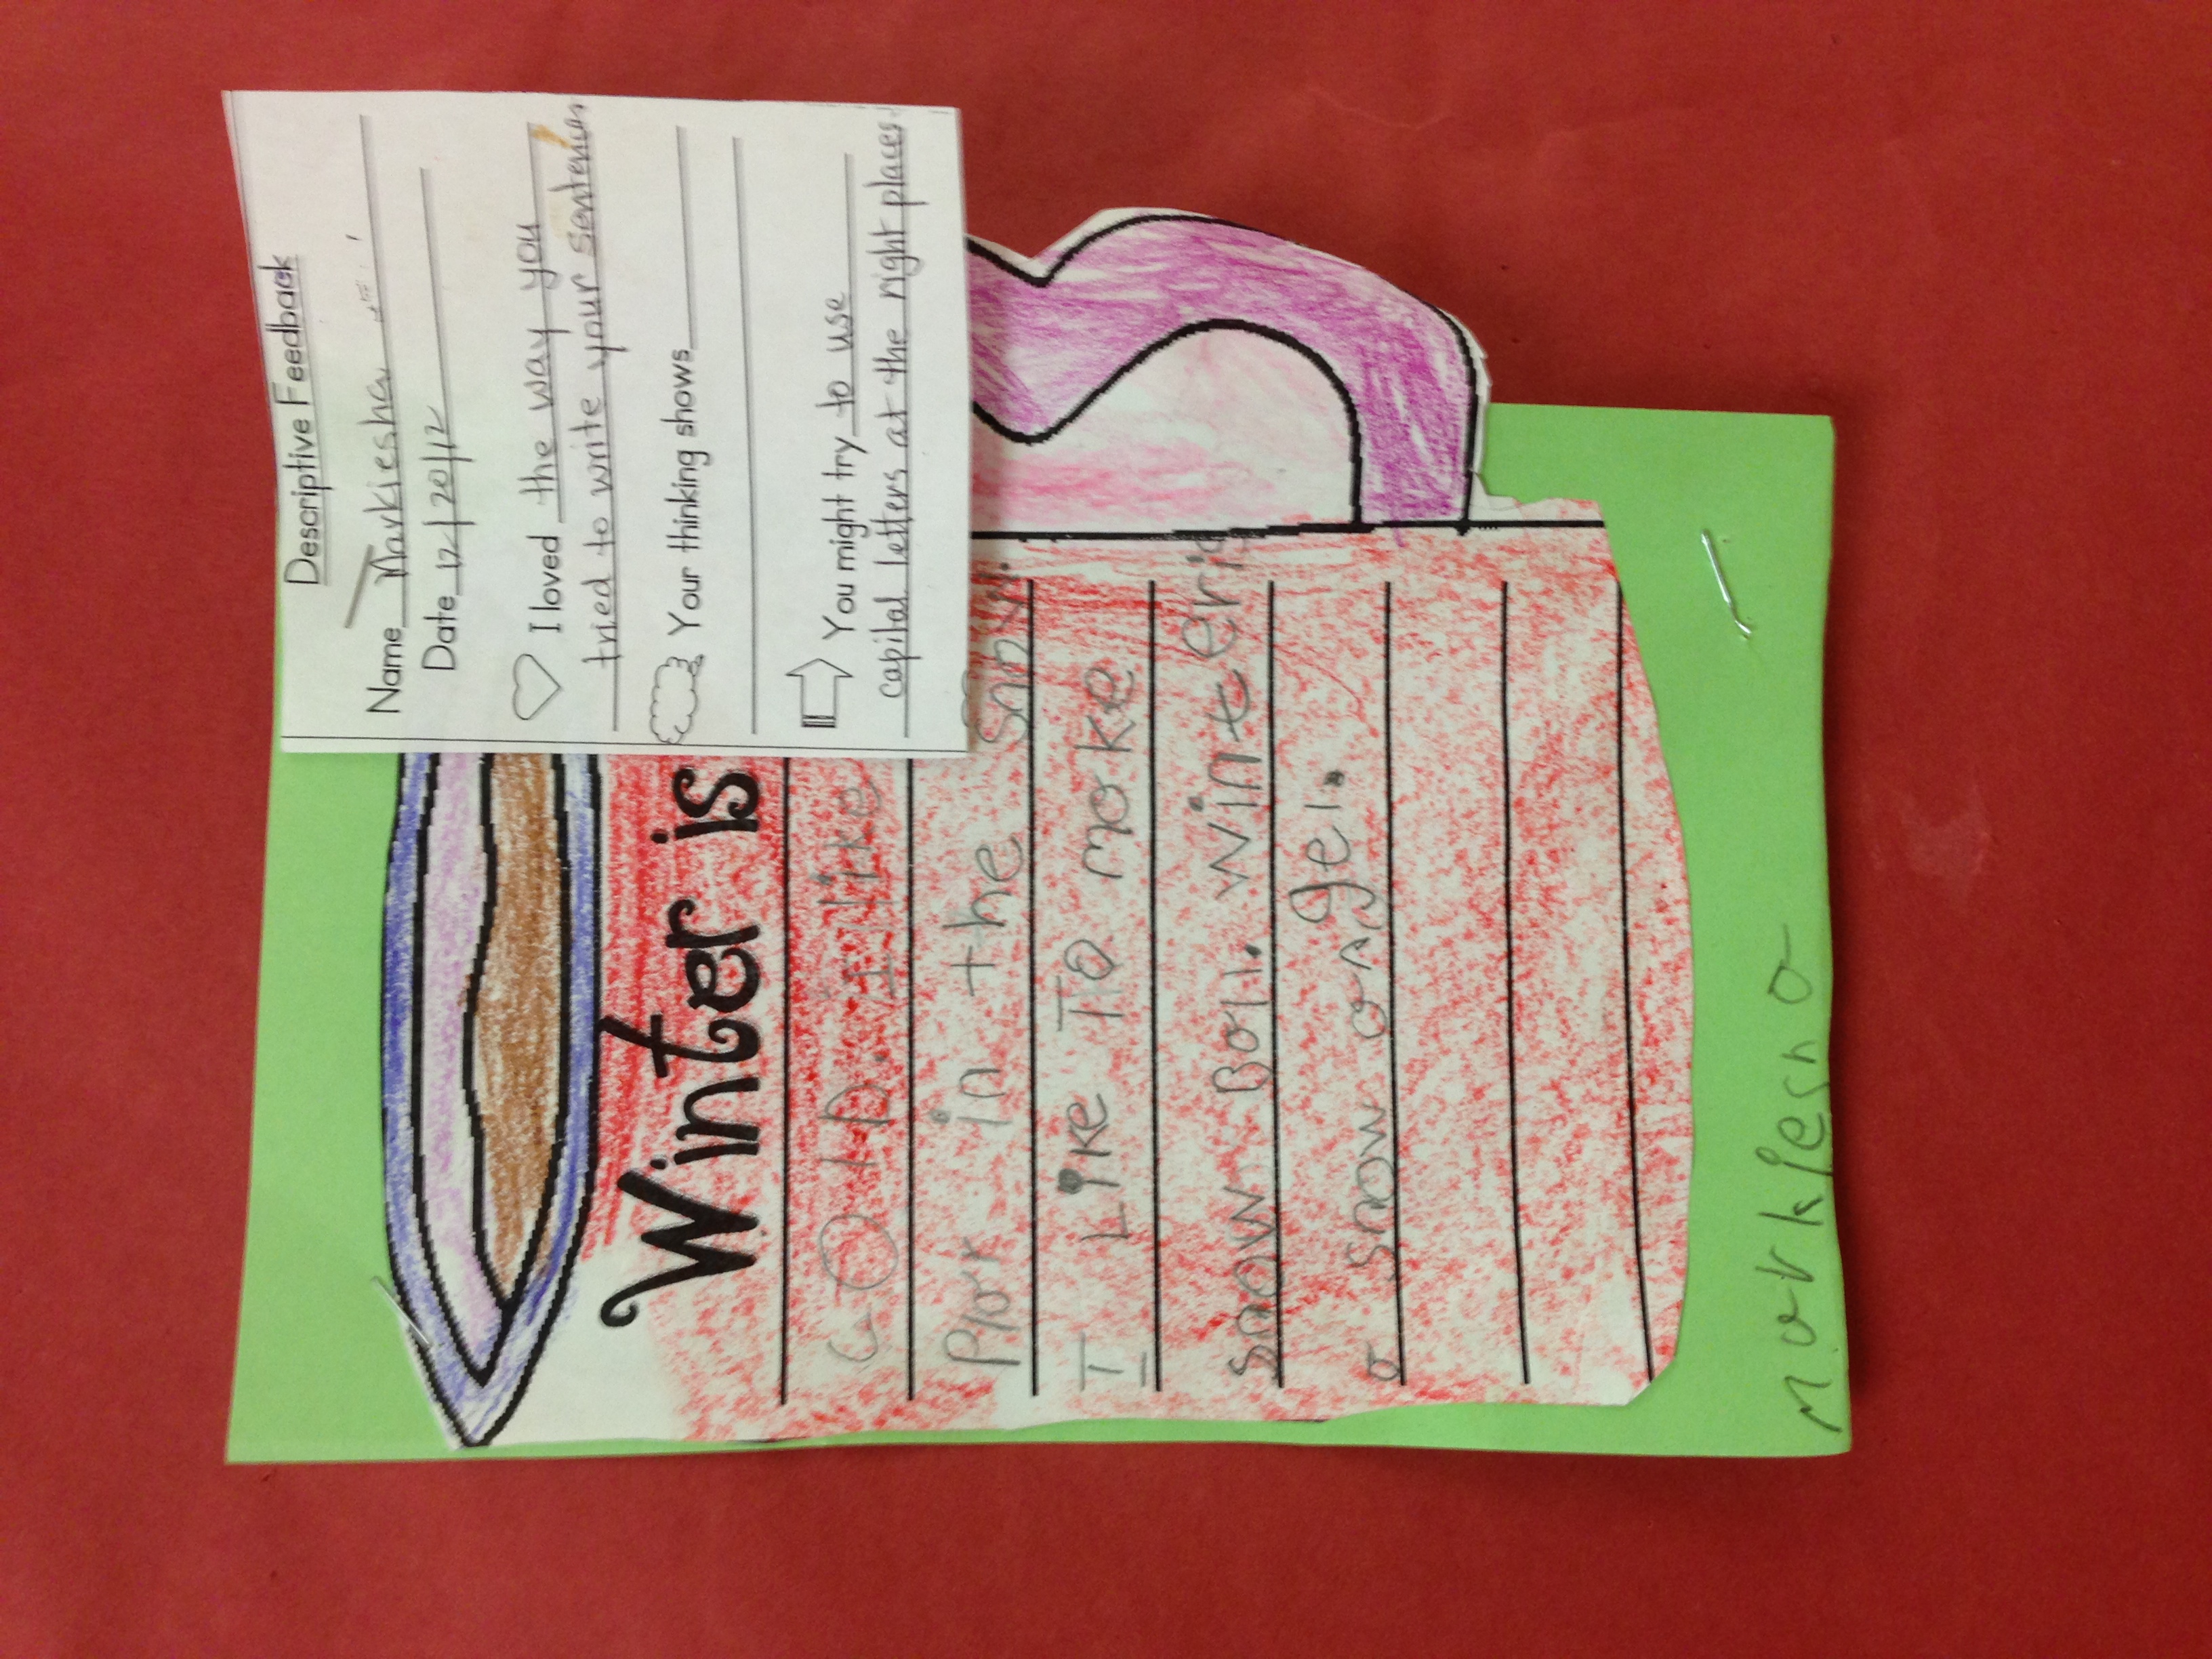 Descriptive Feedback
Name Markiesha
Date 12/20/12
I loved the way you
tried to write your sentences
Your thinking shows
You might try to use
capital letters at the right places.
Winter is
COlD. I like
Plor in the Snow.
I Like To moke
snow Boll. winter is
o snow ongel.
morkiesho